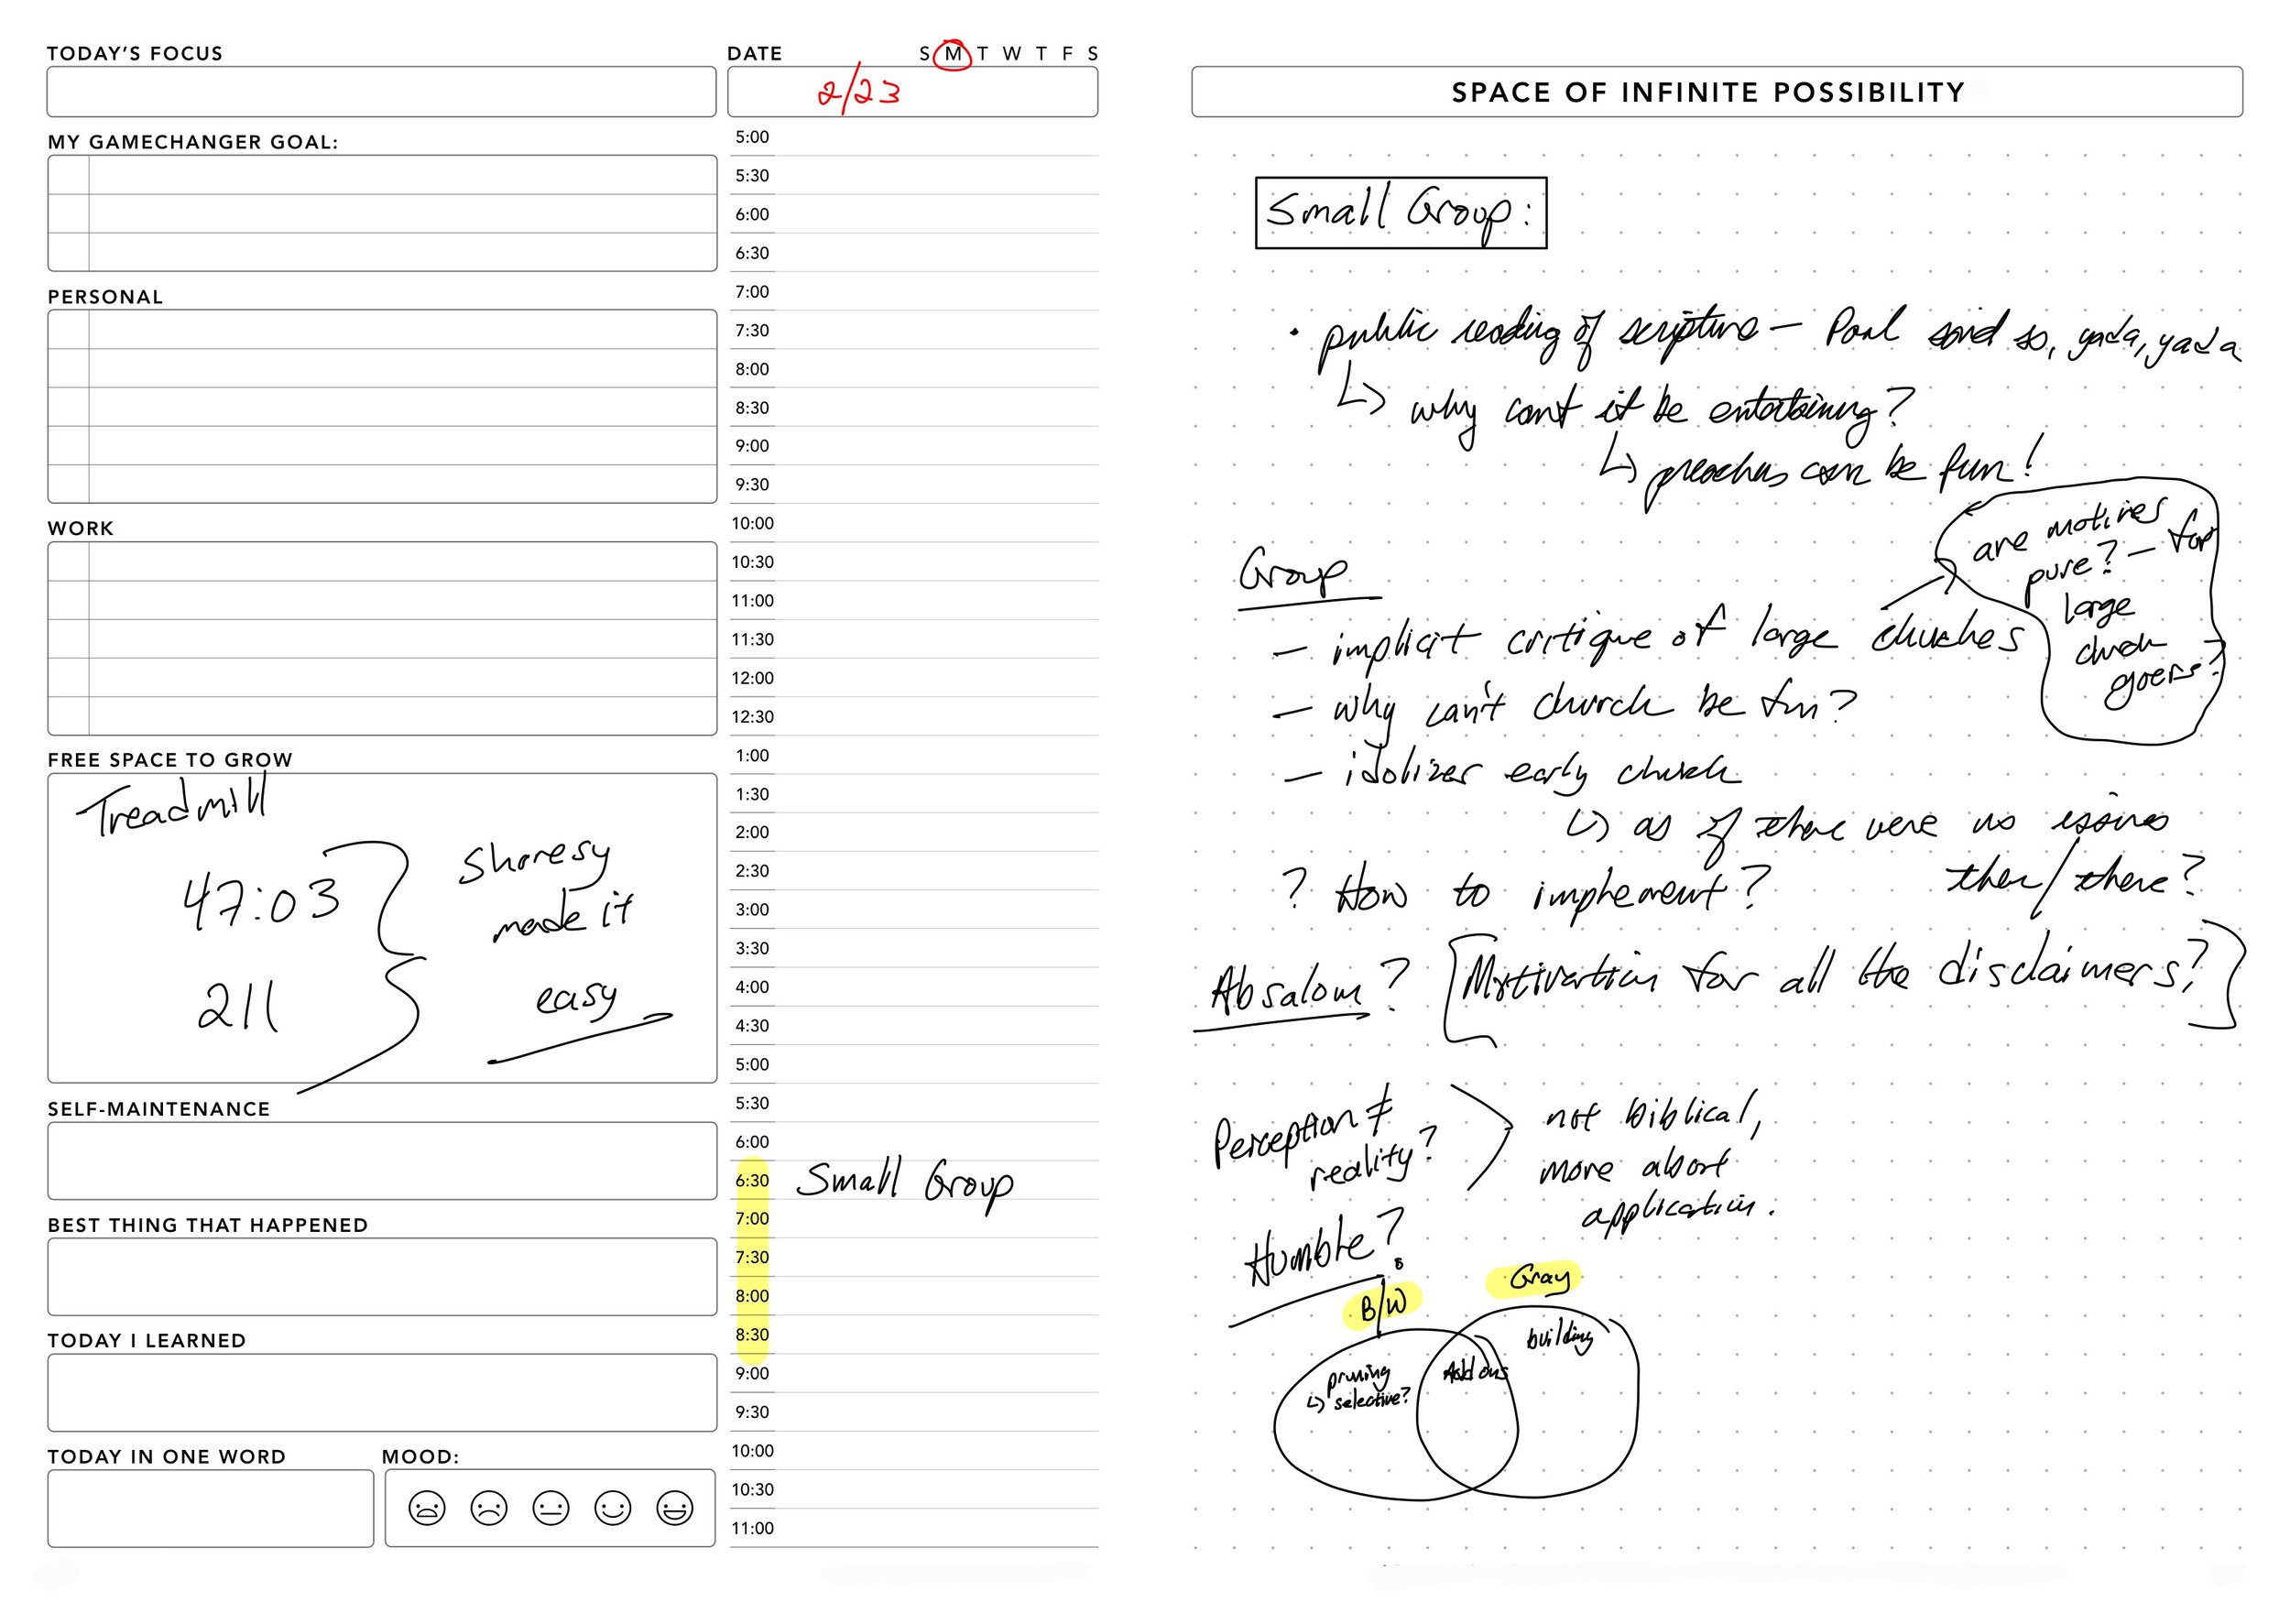 TODAY'S FOCUS
DATE
S M T W T F S
2/23
MY GAMECHANGER GOAL:
PERSONAL
WORK
FREE SPACE TO GROW
Treadmill
47:03
211
Sharesy
made it
easy
SELF-MAINTENANCE
BEST THING THAT HAPPENED
TODAY I LEARNED
TODAY IN ONE WORD
MOOD:
5:00
5:30
6:00
6:30
7:00
7:30
8:00
8:30
9:00
9:30
10:00
10:30
11:00
11:30
12:00
12:30
1:00
1:30
2:00
2:30
3:00
3:30
4:00
4:30
5:00
5:30
6:00
6:30 Small Group
7:00
7:30
8:00
8:30
9:00
9:30
10:00
10:30
11:00
SPACE OF INFINITE POSSIBILITY
Small Group:
• public reading of scripture — Paul said so, yada, yada
↳ why can't it be entertaining?
↳ preachers can be fun!
Group
— implicit critique of large churches
are motives
pure? — for
large
church
goers?
— why can't church be fun?
— idolizes early church
↳ as if there were no issues
then/there?
? How to implement?
Absalom? [Motivation for all the disclaimers?]
Perception ≠
reality?
not biblical,
more about
application.
Humble?
B/W
Gray
pruning
↳ selective?
Add ons
building